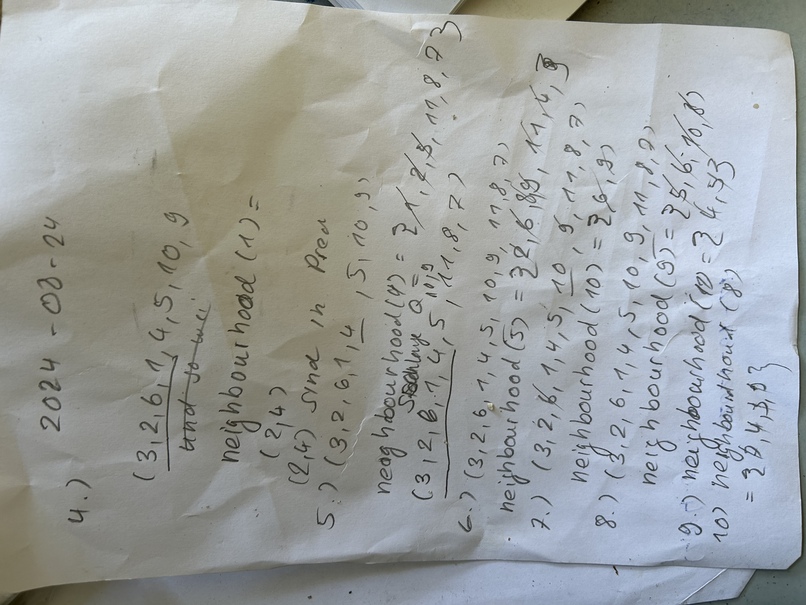 2024-08-24
4.)
(3,2,6,1,4,5,10,9
und so wei
neighbourhood (1) =
(2,4)
(2,4) sind in Pred
5.) (3,2,6,1,4,5,10,9)
neighbourhood(4) = {1,2,5,11,8,7}
Schlange Q =
(3,2,6,1,4,5,10,9,11,8,7)
6.) (3,2,6,1,4,5,10,9,11,8,7)
neighbourhood(5) =
7.) (3,2,6,1,4,5,10,9,11,8,7)
neighbourhood(10) = {6,9}
8.) (3,2,6,1,4,5,10,9,11,8,7)
neighbourhood(9) = {5,6,10,8}
9.) neighbourhood(10 = {4,7}
10) neighbourhood (8)
= {6,4,7,9}